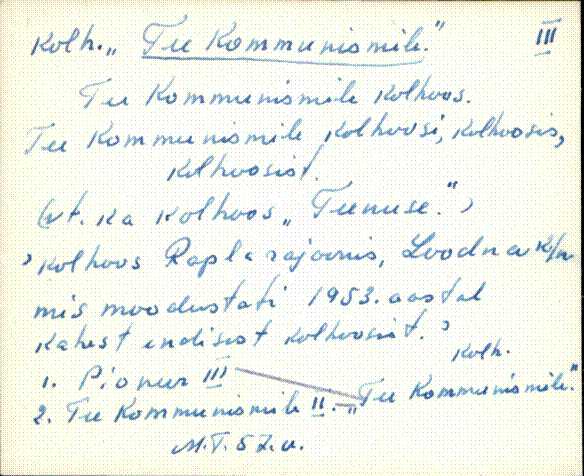 Kolh. „Tee Kommunismile." III
Tee Kommunismile kolhoos.
Tee Kommunismile kolhoosi, kolhoosis,
kolhoosist.
(vt. ka kolhoos „Teenuse.")
' kolhoos Rapla rajoonis, Loodna k/n
mis moodustati 1953. aastal
kahest endisest kolhoosist. '
1. Pioneer III
kolh.
2. Tee Kommunismile II. – „Tee Kommunismile."
M.T. 57.a.